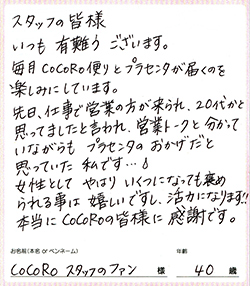 スタッフの皆様
いつも 有難う ございます。
毎月 CoCoRo便りと プラセンタが届くのを
楽しみにしています。
先日、仕事で営業の方が来られ、20代かと
思ってましたと言われ、営業トークと 分かって
いながらも プラセンタの おかげだと
思っていた 私です…♪
女性として やはり いくつになっても 褒め
られる事は 嬉しいですし、活力になります!!
本当に CoCoRoの皆様に 感謝です。
お名前(本名 or ペンネーム) 年齢
CoCoRo スタッフのファン 様 40 歳